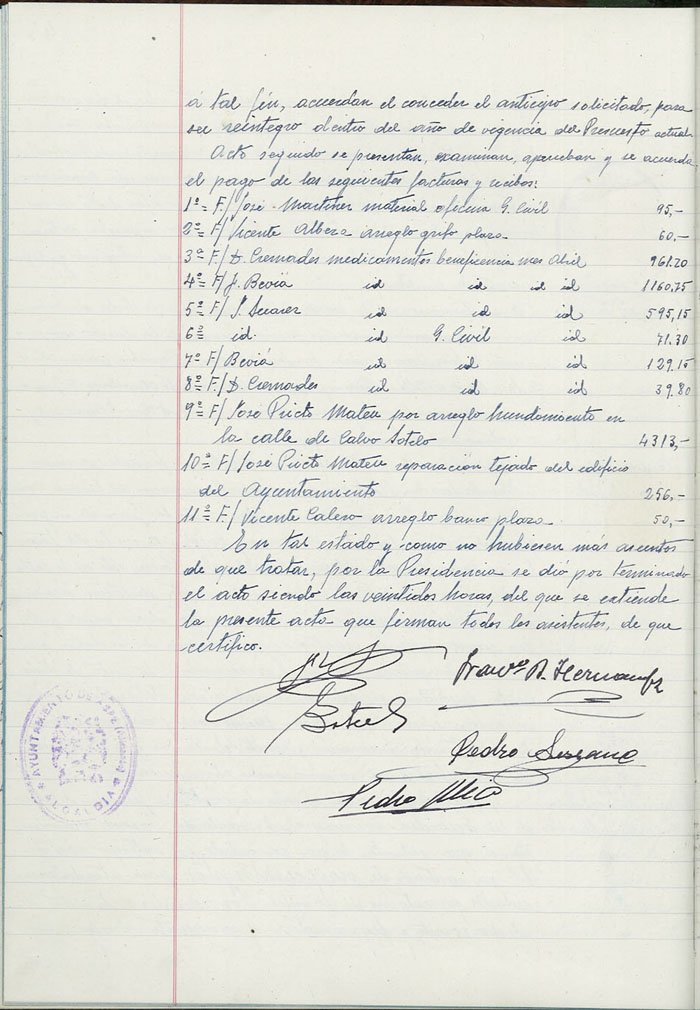 á tal fin, acuerdan el conceder el anticipo solicitado, para
ser reintegro dentro del año de vigencia del Presuesto actual.
Acto seguido se presentan, examinan, aprueban y se acuerda
el pago de los seguientes facturas y recibos:
1ª= F/ José Martinez material oficina G. Civil 95,-
2ª= F/ Vicente Albera arreglo grifo plaza 60.-
3ª F/ D. Cremades medicamentos beneficencia mes Abril 961.20
4ª= F/ J. Beviá id id id id 1160,75
5ª F/ S. Suarez id id id 595,15
6ª= id. id G. Civil id 71.30
7ª F/ Beviá id id id 129.15
8ª= F./ D. Cremades id id id 39.80
9ª= F/ José Picto Mateu por arreglo hundimiento en
la calle de Calvo Sotelo 4313,-
10ª= F/ José Picto Mateu reparación tejado del edificio
del Ayuntamiento 256,-
11ª= F./ Vicente Calero arreglo banco plaza 50,-
En tal estado y como no hubiesen más asuntos
de que tratar, por la Presidencia se dió por terminado
el acto siendo las veintidos horas, del que se extiende
la presente acta que firman todos los asistentes, de que
certifico.
Pedro
Pedro Micó
AYUNTAMIENTO DE
ALCALDIA